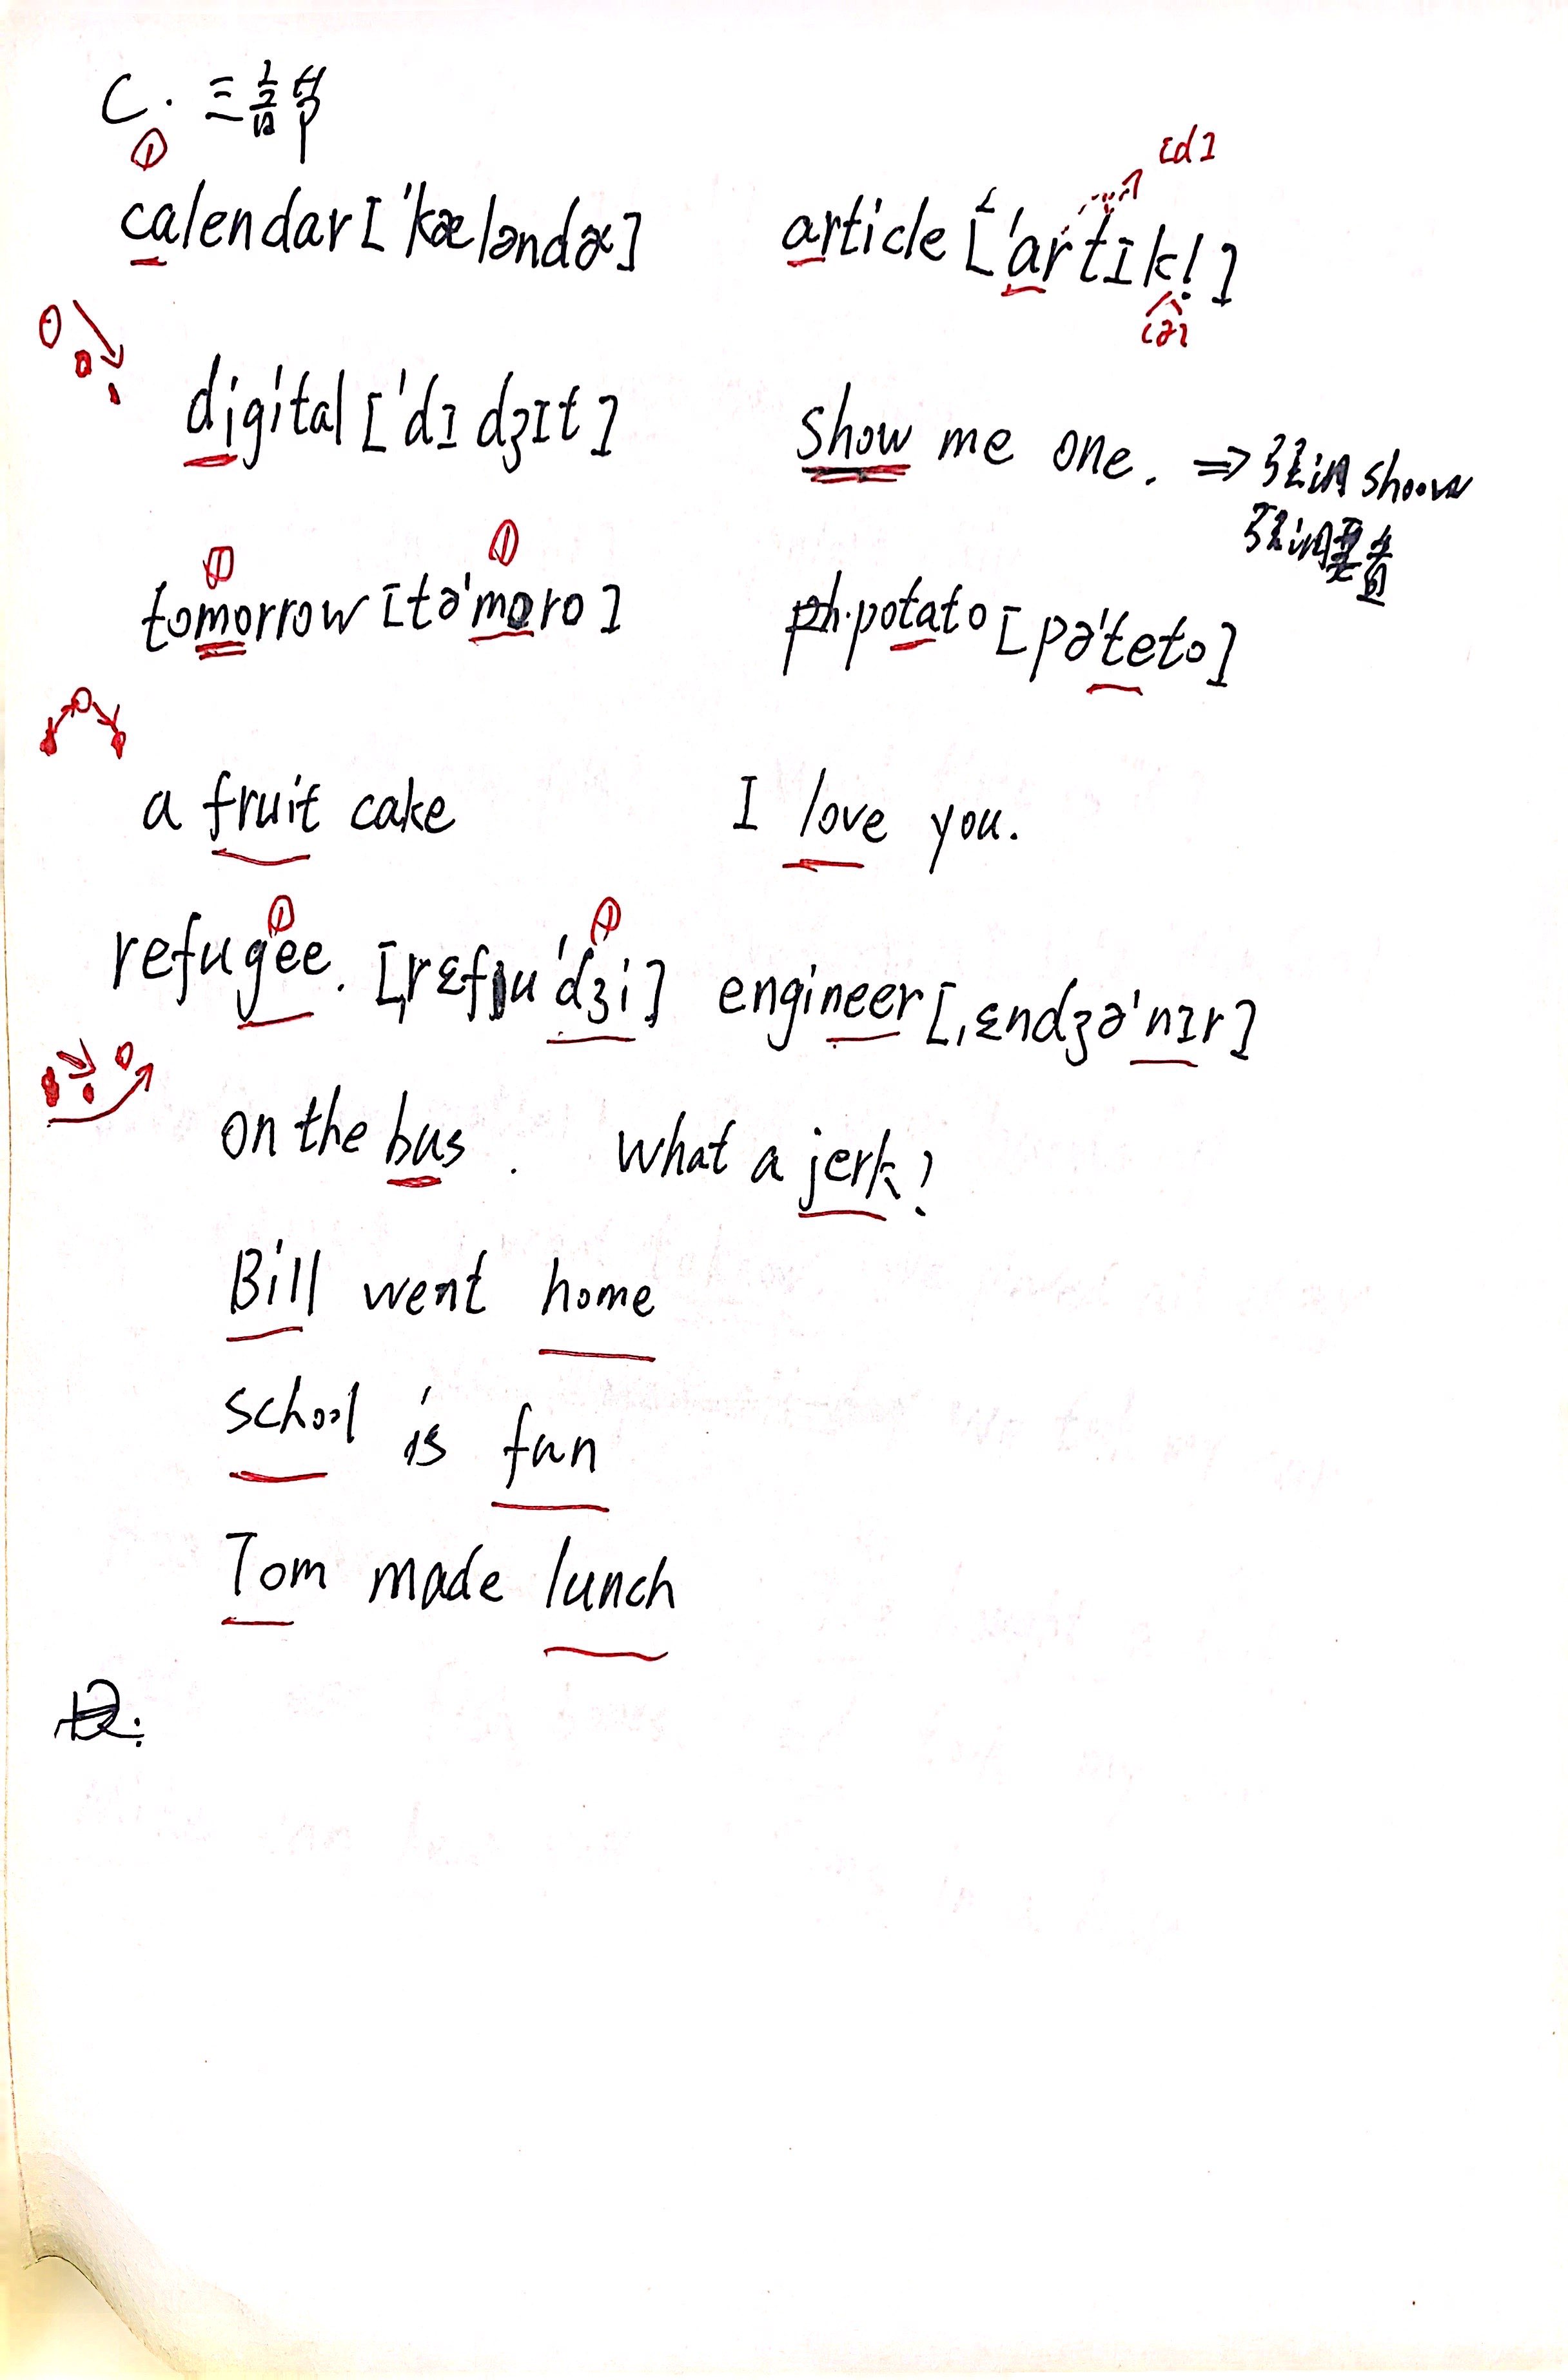 C. 三音节
①
[d]
calendar ['kæləndɚ] article ['artɪkl̩]
[ə]
digital ['dɪdʒɪt] show me one. ⇒ 强调 shoow
强调要看
① ①
tomorrow [tə'moro] ph. potato [pə'teto]
a fruit cake I love you.
① ①
refugee. [ˌrɛfju'dʒi] engineer [ˌɛndʒə'nɪr]
on the bus. what a jerk!
Bill went home
school is fun
Tom made lunch